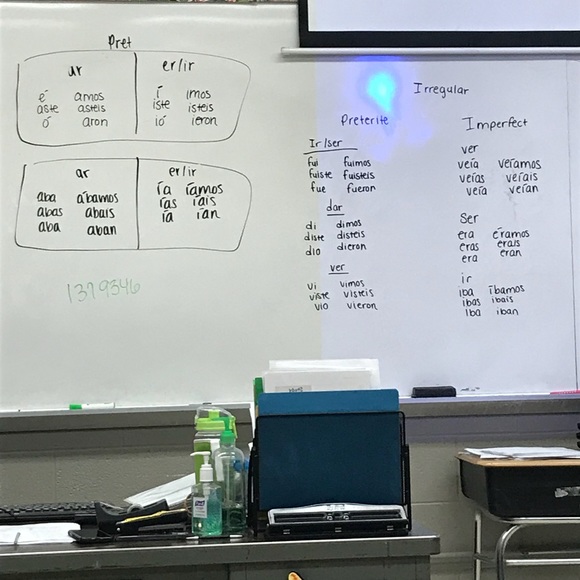 Pret
ar
é amos
aste asteis
ó aron
er/ir
í imos
iste isteis
ió ieron
ar
aba ábamos
abas abais
aba aban
er/ir
ía íamos
ías íais
ía ían
1379546
Irregular
Preterite
Ir/ser
fui fuimos
fuiste fuisteis
fue fueron
dar
di dimos
diste disteis
dio dieron
ver
vi vimos
viste visteis
vio vieron
Imperfect
ver
veía veíamos
veías veíais
veía veían
Ser
era éramos
eras erais
era eran
ir
iba íbamos
ibas ibais
iba iban